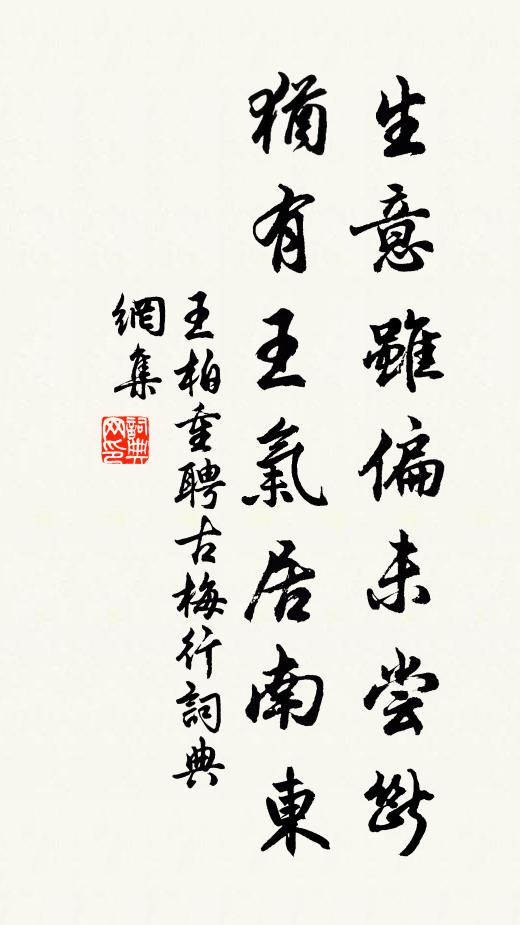 生意雖偏未嘗斷
猶有王氣居南東
王柏重聘古梅行詞典
網集
詞典網印